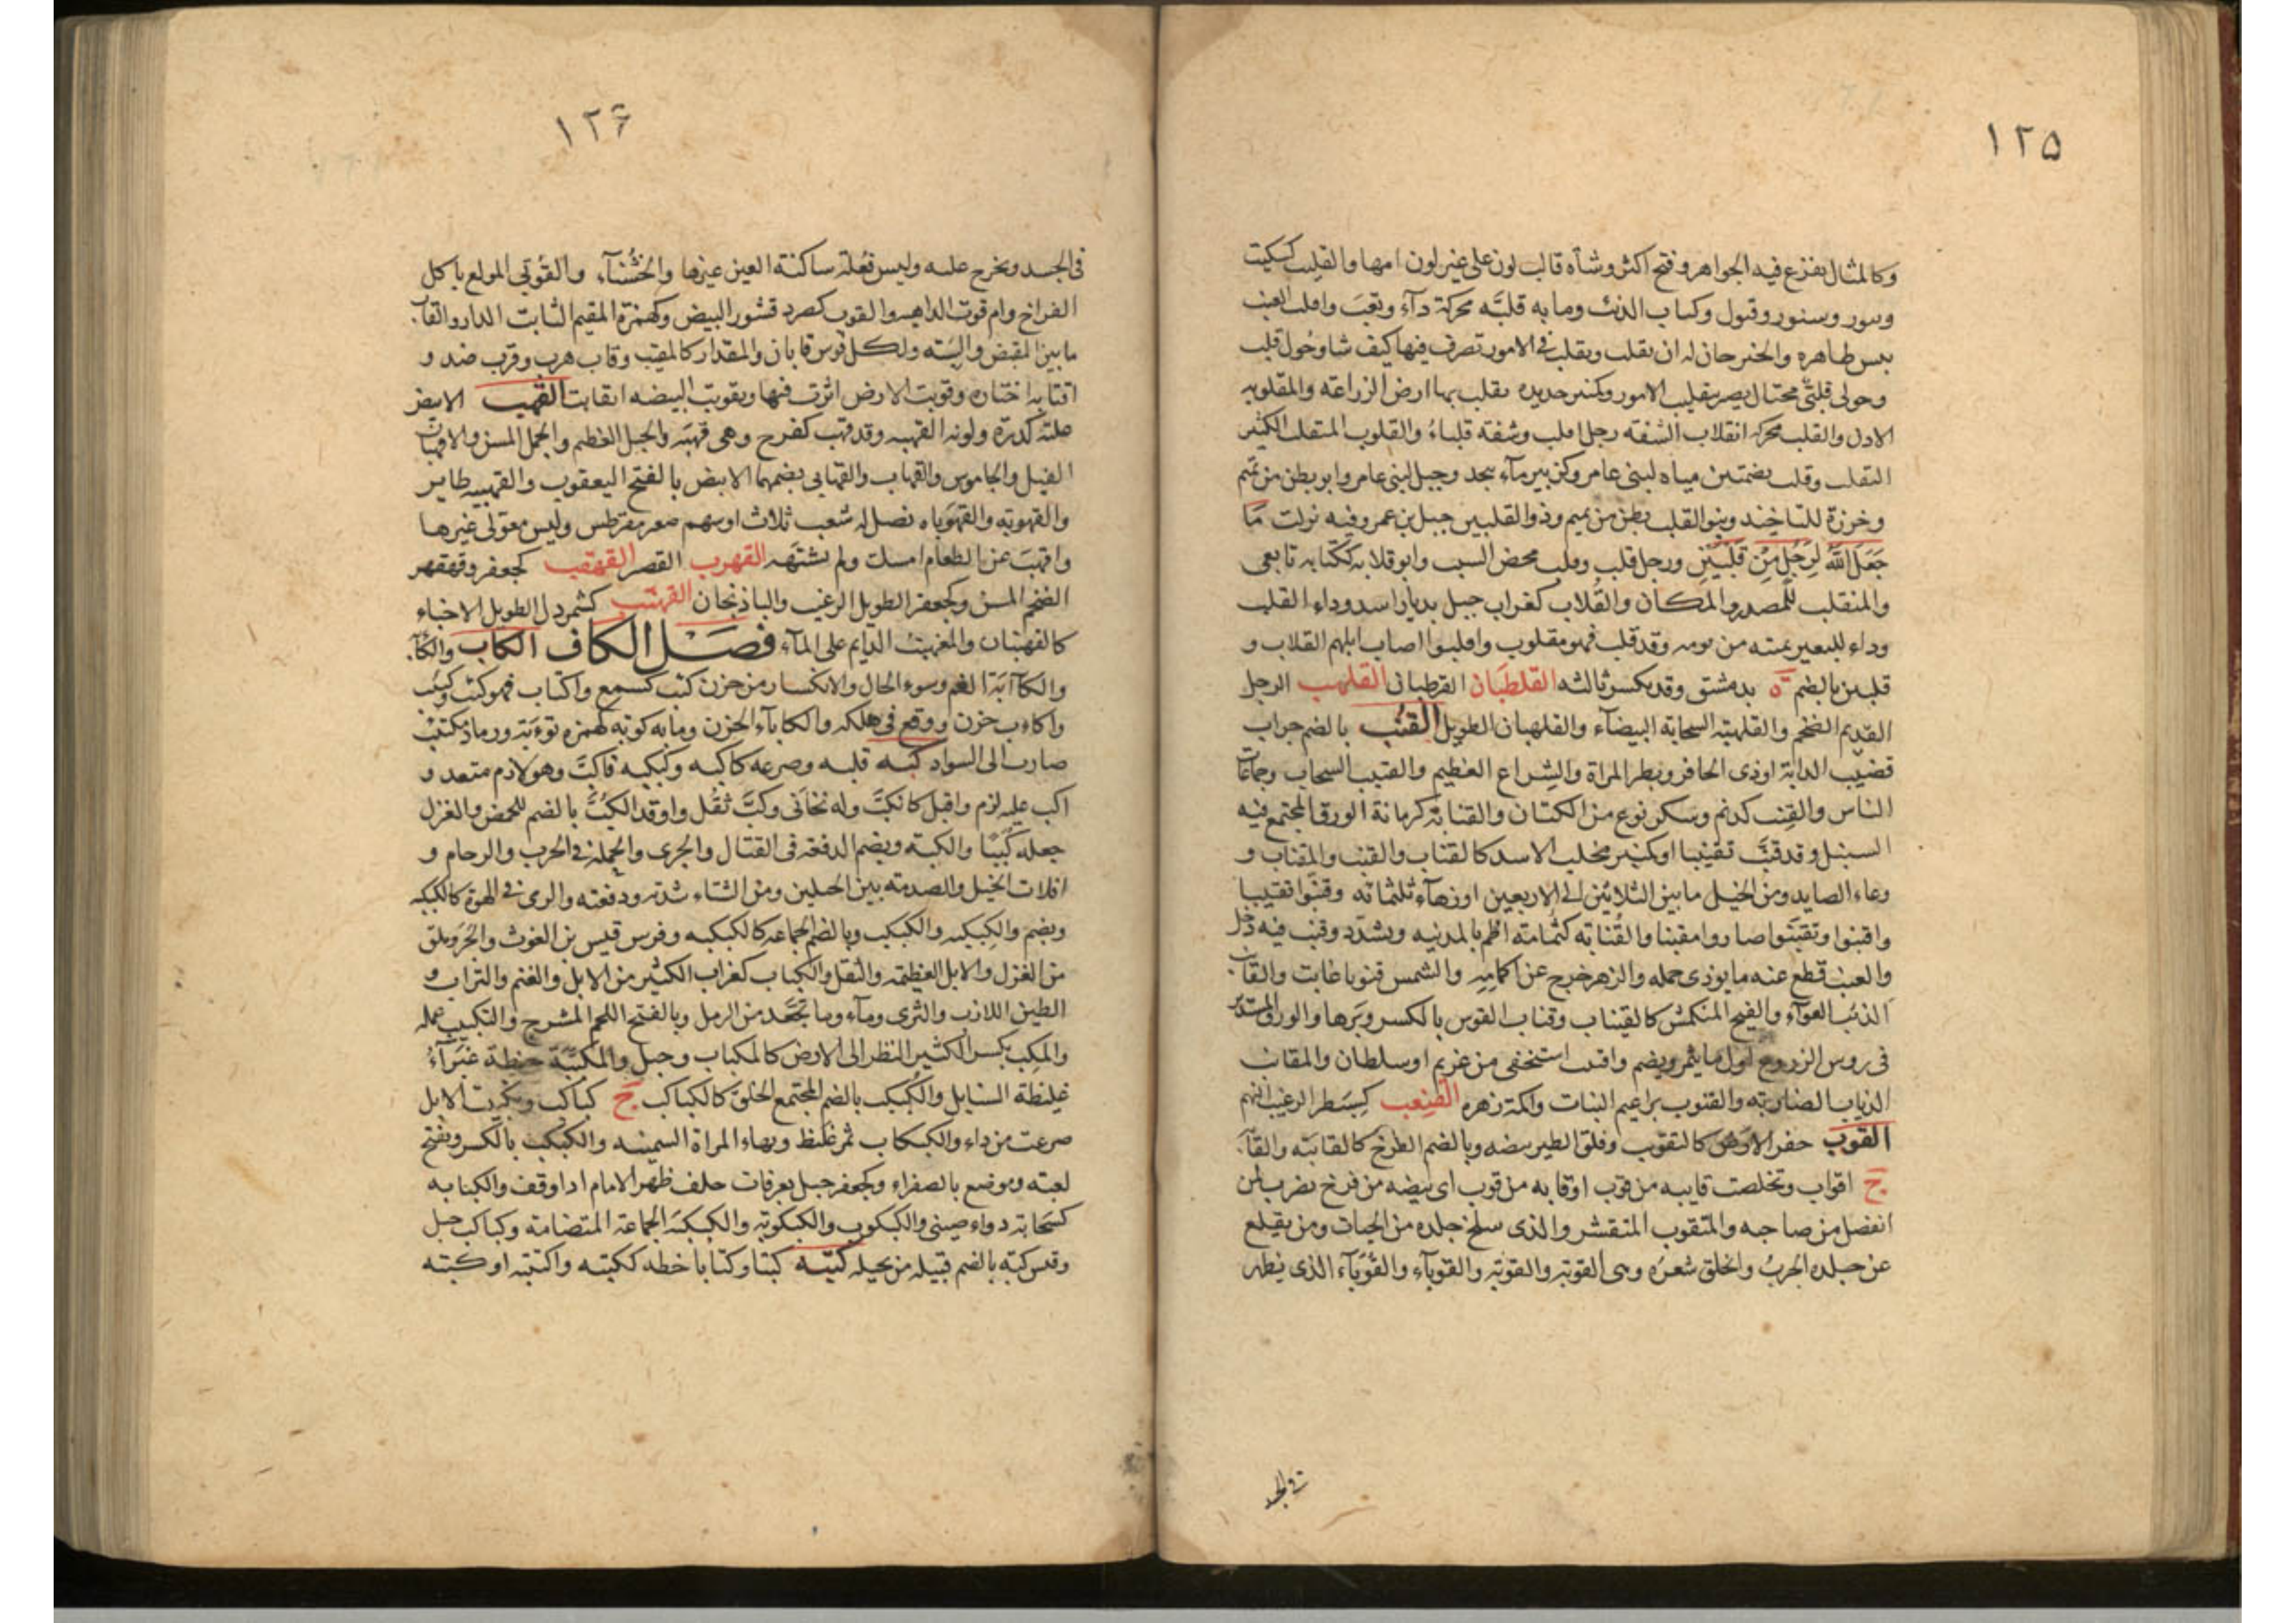 ١٢٥
وكالمثال يفرغ فيه الجواهر وفتح اكثر وشاة قالب لون على غير لون امها والقليب كسكيت
وسور وسنور وقبول وكساب الذئب وما به قلبة محركة داء وتعب واقلب العنب
يبس ظاهره والخبز حان له ان يقلب وتقلب في الامور تصرف فيها كيف شا وحول قلب
وحولى قلبى محتال بصير بتقليب الامور وكمنبر حديدة يقلب بها ارض الزراعة والمقلوبه
الاذن والقلب محركه انقلاب الشفته رجل اقلب وشفة قلباء والقلوب المتقلب الكثير
التقلب وقلب بضمتين مياه لبنى عامر وكزبير ماء بنجد وجبل لبنى عامر وابو بطن من تميم
وخرزة للتاخيذ وبنو القلب بطن من تميم وذو القلبين جميل بن عمر وفيه نزلت مَا
جَعَلَ اللّٰه لِرَجُلٍ مِنْ قَلْبَيْنِ ورجل قلب وقلب محض النسب وابو قلابه ككتابه تابعى
والمنقلب للمصدر والمكان والقُلاب كغراب جبل بديار اسد وداء القلب
وداء للبعير يميته من يومه وقد قلب فهو مقلوب واقلبوا اصاب ابلهم القلاب و
قلبين بالضم ة بدمشق وقد يكسر ثالثه القلطَبَان القرطبانى القلهب الرجل
القديم الضخم والقلهبة السحابة البيضاء والقلهبان الطويل القُنْب بالضم جراب
قضيب الدابة او ذى الحافر وبظر المراة والشراع العظيم والقنيب السحاب وجماعات
الناس والقِنب كدنم وسكر نوع من الكتان والقنابة كرمانة الورق المجتمع فيه
السنبل وقد قنَّب تقنيبا وكمنبر مخلب الاسد كالقناب والقنب والمقناب و
وعاء الصايد ومن الخيل ما بين الثلاثين الى الاربعين او زهاء ثلثمائة وقنبوا تقنيبا
واقنبوا وتقنبوا صاروا مقنبا والقُنابة كثمامة اطم بالمدينه ويشدد وقنب فيه دخل
والعنب قطع عنه ما يوذى حمله والزهر خرج عن اكمامه والشمس قنوبا غابت والقانب
الذئب العواء والفيج المنكمش كالقيناب وقناب القوس بالكسر وترها والورق المستدير
فى روس الزروع اول ما يثمر ويضم واقنب استخفى من غريم او سلطان والمقانب
الذياب الضارية والقنوب براعيم النبات واكمة زهره القنعب كسبطر الرغيب النهم
القوب حفر الارض كالتقويب وفلق الطير بيضه وبالضم الفرخ كالقابة والقا
ج اقواب وتخلصت قايبه من قوب او قابه من قوب اى بيضه من فرخ يضرب لمن
انفصل من صاحبه والمتقوب المتقشر والذى سلخ جلده من الحيات ومن يقلع
عن جلده الجربُ وانحلق شعره وهى القوبة والقوبة والقوباء والقُوَباء الذى يظهر
فى الجسد
١٢٦
فى الجسد ويخرج عليه وليس فعلة ساكنة العين غيرها والخُشّاء والقُوبى المولع باكل
الفراخ وام قوب الداهيه والقوب كصرد قشور البيض وكهمزة المقيم الثابت الدار والقاب
ما بين المقبض والسية ولكل قوس قابان والمقدار كالقيب وقاب هرب وقرب ضد و
اقتابه اختاره وقوبت الارض اثرت فيها وتقوبت البيضه انقابت القهب الابيض
علته كدرة ولونه القهبه وقد قهب كفرح وهى قهبه والجبل العظيم والجمل المسن والاقهبان
الفيل والجاموس والقهاب والقهابى بضمهما الابيض بالفتح اليعقوب والقهيبه طاير
والقهوبة والقهوباه نصل له شعب ثلاث او سهم صغر مقرطس وليس فعولى غيرها
واقهبَ عن الطعام امسك ولم يشتهه القهرب القصر القهقب كجعفر وقهقهر
الضخم المسن وكجعفر الطويل الرغيب والباذنجان القهنب كشمردل الطويل الاخباء
كالقهنبان والمقهنب الدايم على الماء فصل الكاف الكاب والكا
والكآبة الغم وسوء الحال والانكسار من حزن كئب كسمع واكتاب فهو كئب وكئيب
واكاب حزن ووقع فى هلكه والكاباء الحزن وما به كوبه كهمزه توءبة ورماد مكتئب
ضارب الى السواد كبه قلبه وصرعه كاكبه وكبكبه فاكبَّ وهو لازم متعد و
اكب عليه لزم واقبل كانكبَّ وله نحانى وكبَّ ثقل واوقد الكُبَّ بالضم للحمض والغزل
جعله كُبَبًا والكبة ويضم الدفعة فى القتال والجرى والحملة فى الحرب والزحام و
افلات الخيل والصدمة بين الخيلين ومن الشتاء شدته ودفعته والرمى فى الهوة كالكبكبه
ويضم والكبكبه والكبكب وبالضم الجماعه كالكبكبه وفرس قيس بن الغوث والجروهلق
من الغزل والابل العظيمة والثقل والكباب كغراب الكثير من الابل والغنم والتراب و
الطين اللازب والثرى وماء وما تجعد من الرمل وبالفتح اللحم المشرح والتكبيب عمله
والمكب بكسر الكثير النظر الى الارض كالمكباب وجبل والمكببة حنطة غبراء
غليظة السنابل والكبكب بالضم المجتمع الخلق كالكباكب ج كباكب وتكببت الابل
صرعت من داء والكبكاب ثمر غليظ وبهاء المراة السمينه والكبكب بالكسر ويفتح
لعبة وموضع بالصفراء وكجعفر جبل بعرفات خلف ظهر الامام اذا وقف والكبابه
كسحابة دواء صينى والكبكوب والكبكوبة والكبكبه الجماعة المتضامة وكباكب جبل
وقيس كبة بالضم قبيله من بجيله كتبه كتبا وكتابا خطه ككتبه واكتتبه او كتبه